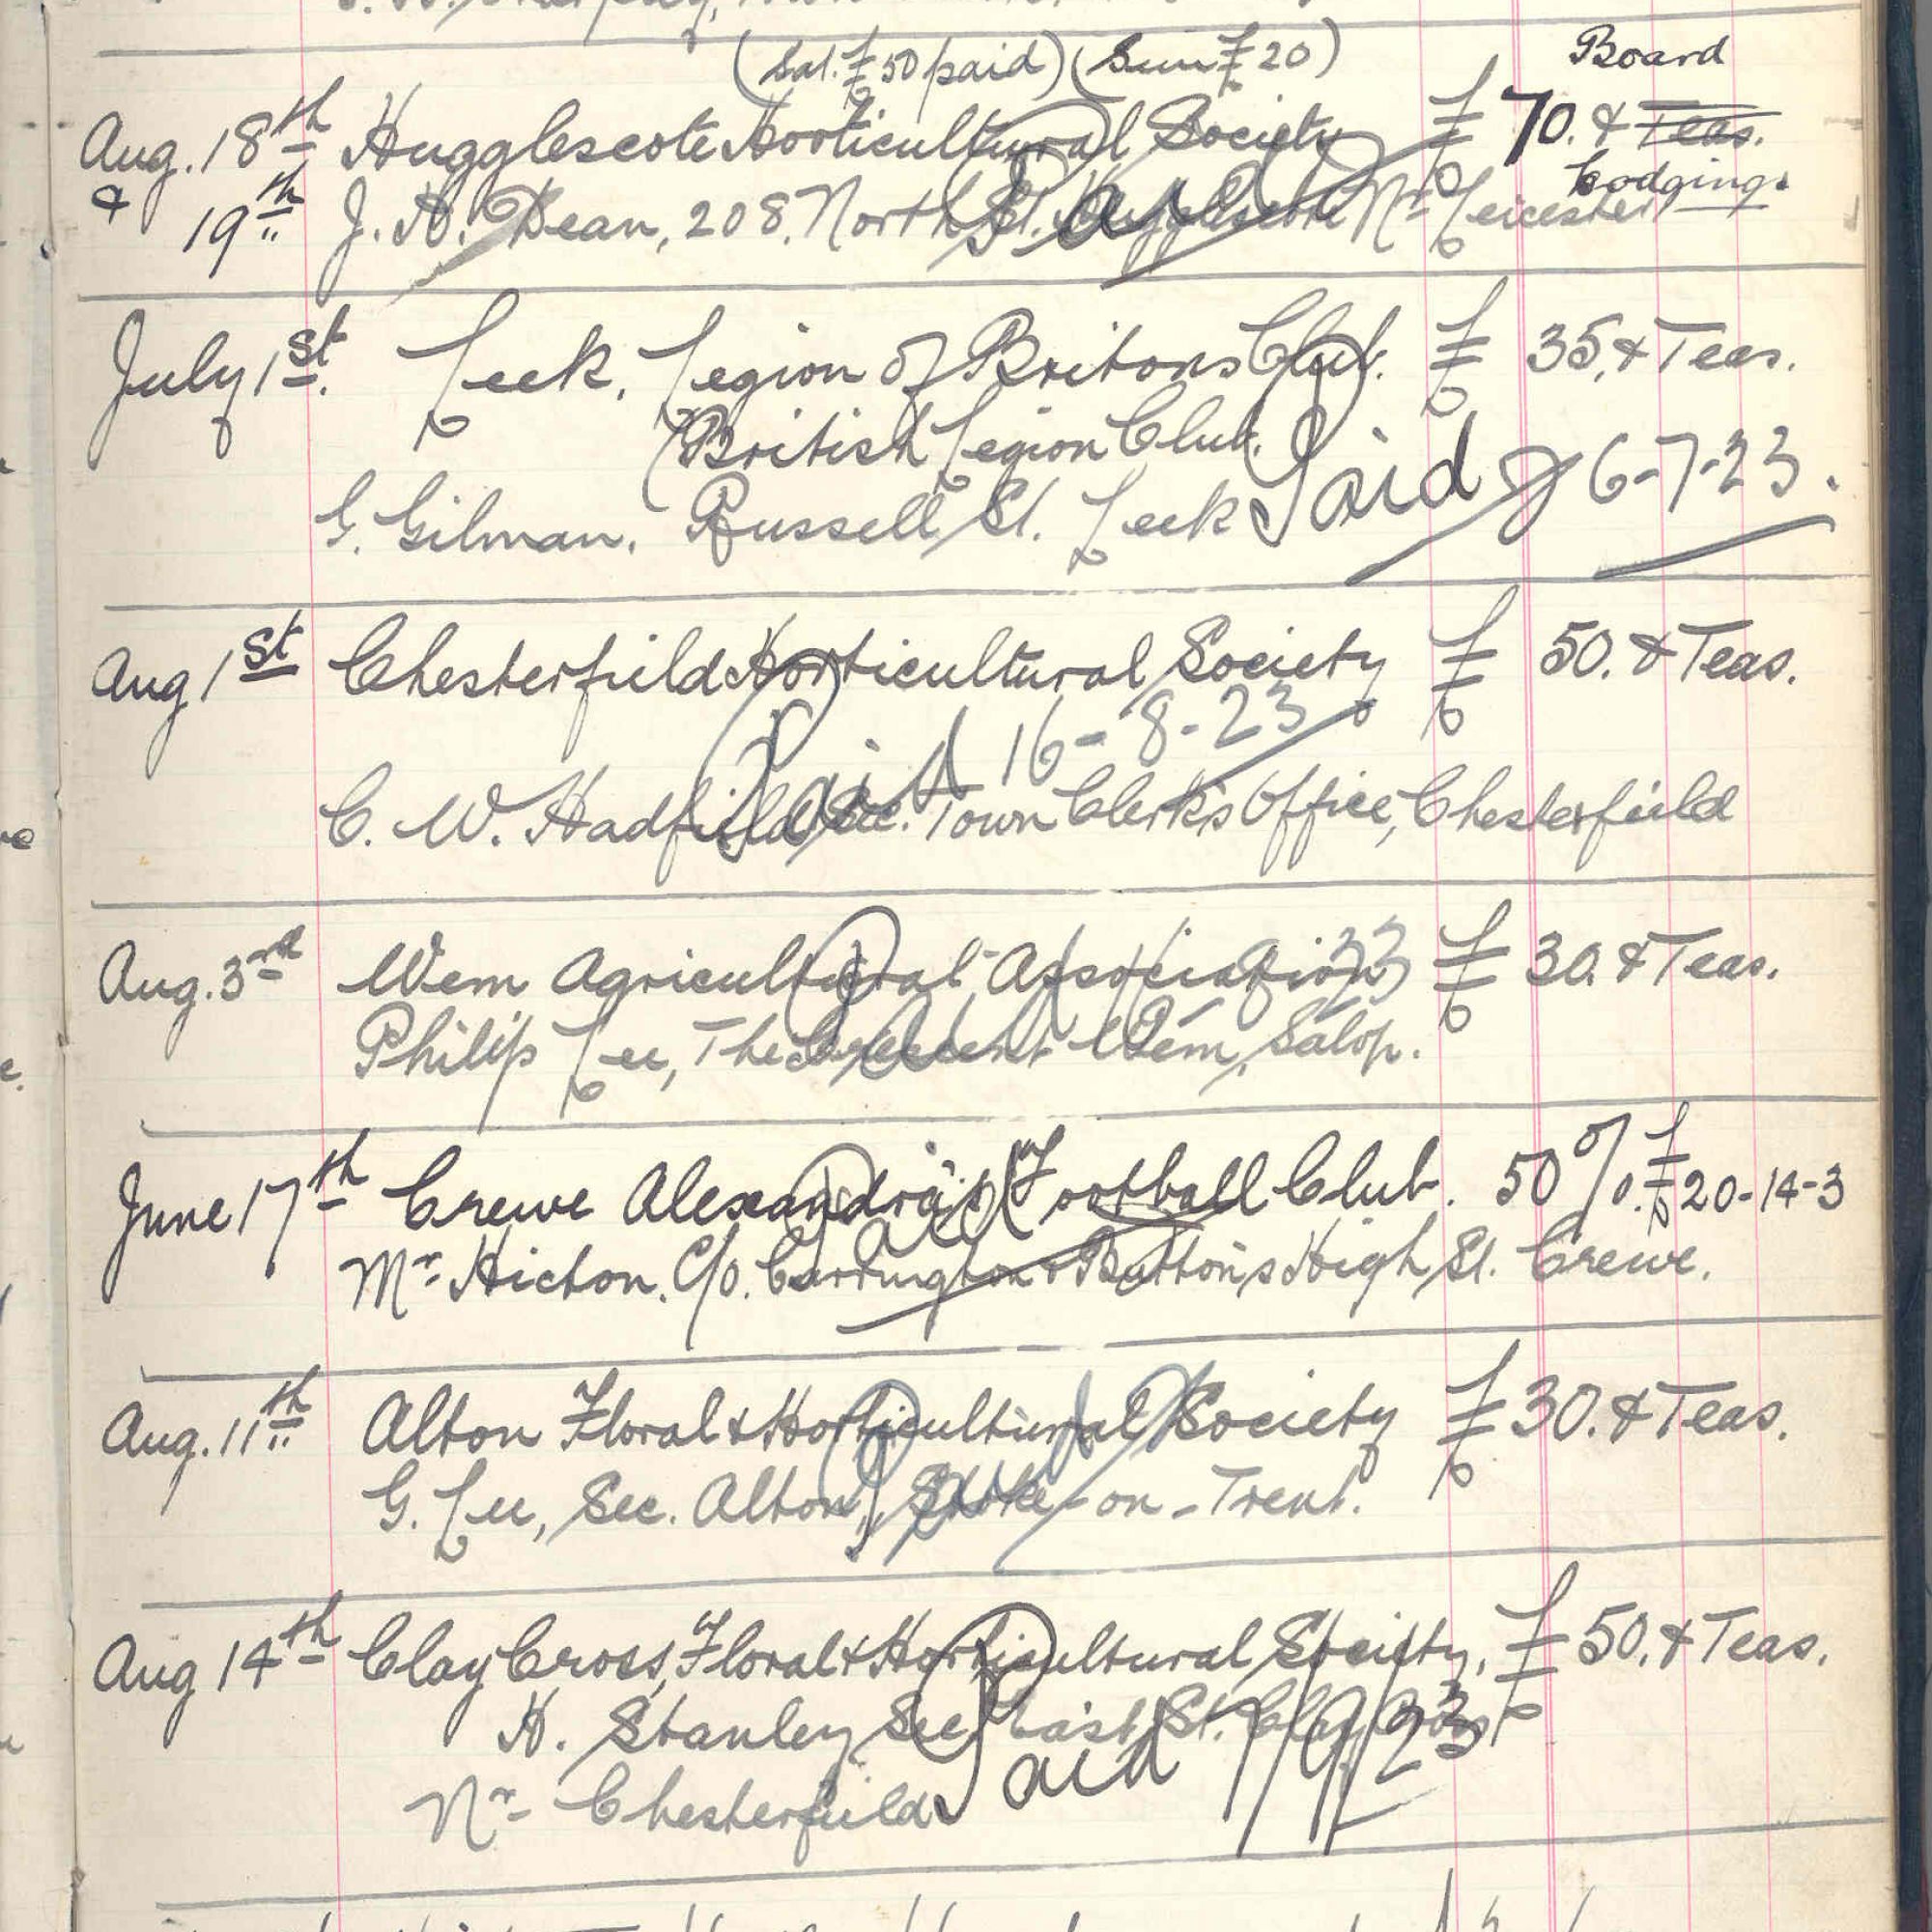 (Sat. £50 paid) (Sun £20) Board
Aug. 18th Hugglescote Horticultural Society £70. & Teas.
& 19th J. H. Dean, 208. North St. Hugglescote Nr Leicester Lodgings
Paid
July 1st. Leek. Legion of Britons Club. £35. & Teas.
(British Legion Club.
G. Gilman. Russell St. Leek Paid 6-7-23.
Aug 1st Chesterfield Horticultural Society £50. & Teas.
Paid 16-8-23
C. W. Hadfield Sec. Town Clerk's Office, Chesterfield
Aug. 3rd Wem Agricultural Association £30. & Teas.
Philip Lee, The Crescent Wem, Salop.
Paid
June 17th Crewe Alexandra's Football Club. 50%. £20-14-3
Paid
Mr Hicton. C/o. Carrington & Button's High St. Crewe.
Aug. 11th Alton Floral & Horticultural Society £30. & Teas.
G. Lee, Sec. Alton, Stoke-on-Trent.
Paid
Aug 14th Clay Cross, Floral & Horticultural Society, £50. & Teas.
H. Stanley Sec East St. Clay Cross
Nr Chesterfield Paid 1/9/23